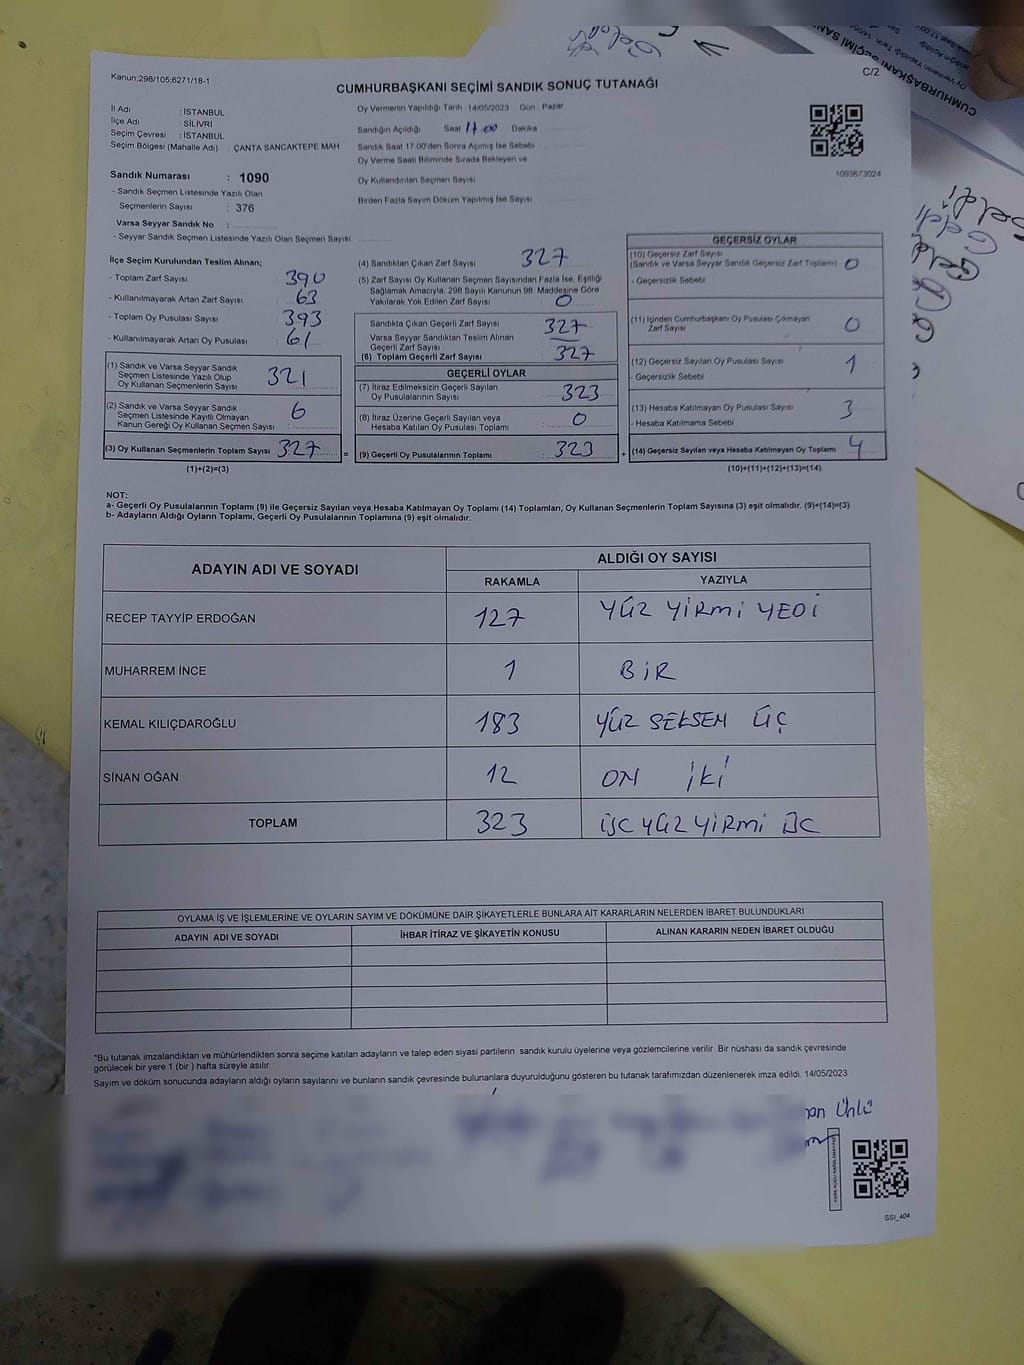 Kanun;298/105;6271/18-1
C/2
CUMHURBAŞKANI SEÇİMİ SANDIK SONUÇ TUTANAĞI
İl Adı : İSTANBUL
İlçe Adı : SİLİVRİ
Seçim Çevresi : İSTANBUL
Seçim Bölgesi (Mahalle Adı) : ÇANTA SANCAKTEPE MAH
Oy Vermenin Yapıldığı Tarih : 14/05/2023 Gün : Pazar
Sandığın Açıldığı Saat 17.00 Dakika
Sandık Saat 17:00'den Sonra Açımış İse Sebebi
Oy Verme Saati Bitiminde Sırada Bekleyen ve
Oy Kullandırılan Seçmen Sayısı
Birden Fazla Sayım Döküm Yapılmış İse Sayısı
1093673024
Sandık Numarası : 1090
- Sandık Seçmen Listesinde Yazılı Olan
Seçmenlerin Sayısı : 376
Varsa Seyyar Sandık No :
- Seyyar Sandık Seçmen Listesinde Yazılı Olan Seçmen Sayısı
İlçe Seçim Kurulundan Teslim Alınan;
- Toplam Zarf Sayısı : 390
- Kullanılmayarak Artan Zarf Sayısı : 63
- Toplam Oy Pusulası Sayısı : 393
- Kullanılmayarak Artan Oy Pusulası : 61
(1) Sandık ve Varsa Seyyar Sandık
Seçmen Listesinde Yazılı Olup
Oy Kullanan Seçmenlerin Sayısı 321
(2) Sandık ve Varsa Seyyar Sandık
Seçmen Listesinde Kayıtlı Olmayan
Kanun Gereği Oy Kullanan Seçmen Sayısı : 6
(3) Oy Kullanan Seçmenlerin Toplam Sayısı 327
(1)+(2)=(3)
(4) Sandıktan Çıkan Zarf Sayısı 327
(5) Zarf Sayısı Oy Kullanan Seçmen Sayısından Fazla İse, Eşitliği
Sağlamak Amacıyla, 298 Sayılı Kanunun 98. Maddesine Göre
Yakılarak Yok Edilen Zarf Sayısı : 0
Sandıkta Çıkan Geçerli Zarf Sayısı 327
Varsa Seyyar Sandıktan Teslim Alınan
Geçerli Zarf Sayısı
(6) Toplam Geçerli Zarf Sayısı : 327
GEÇERLİ OYLAR
(7) İtiraz Edilmeksizin Geçerli Sayılan
Oy Pusulalarının Sayısı : 323
(8) İtiraz Üzerine Geçerli Sayılan veya
Hesaba Katılan Oy Pusulası Toplamı : 0
= (9) Geçerli Oy Pusulalarının Toplamı : 323 +
GEÇERSİZ OYLAR
(10) Geçersiz Zarf Sayısı
(Sandık ve Varsa Seyyar Sandık Geçersiz Zarf Toplamı) 0
- Geçersizlik Sebebi
(11) İçinden Cumhurbaşkanı Oy Pusulası Çıkmayan
Zarf Sayısı 0
(12) Geçersiz Sayılan Oy Pusulası Sayısı 1
- Geçersizlik Sebebi
(13) Hesaba Katılmayan Oy Pusulası Sayısı 3
- Hesaba Katılmama Sebebi
(14) Geçersiz Sayılan veya Hesaba Katılmayan Oy Toplamı 4
(10)+(11)+(12)+(13)=(14)
NOT:
a- Geçerli Oy Pusulalarının Toplamı (9) ile Geçersiz Sayılan veya Hesaba Katılmayan Oy Toplamı (14) Toplamları, Oy Kullanan Seçmenlerin Toplam Sayısına (3) eşit olmalıdır. (9)+(14)=(3)
b- Adayların Aldığı Oyların Toplamı, Geçerli Oy Pusulalarının Toplamına (9) eşit olmalıdır.
ADAYIN ADI VE SOYADI ALDIĞI OY SAYISI
RAKAMLA YAZIYLA
RECEP TAYYİP ERDOĞAN 127 YÜZ YİRMİ YEDİ
MUHARREM İNCE 1 BİR
KEMAL KILIÇDAROĞLU 183 YÜZ SEKSEN ÜÇ
SİNAN OĞAN 12 ON İKİ
TOPLAM 323 ÜÇ YÜZ YİRMİ ÜÇ
OYLAMA İŞ VE İŞLEMLERİNE VE OYLARIN SAYIM VE DÖKÜMÜNE DAİR ŞİKAYETLERLE BUNLARA AİT KARARLARIN NELERDEN İBARET BULUNDUKLARI
ADAYIN ADI VE SOYADI İHBAR İTİRAZ VE ŞİKAYETİN KONUSU ALINAN KARARIN NEDEN İBARET OLDUĞU
*Bu tutanak imzalandıktan ve mühürlendikten sonra seçime katılan adayların ve talep eden siyasi partilerin sandık kurulu üyelerine veya gözlemcilerine verilir .Bir nüshası da sandık çevresinde
görülecek bir yere 1 (bir ) hafta süreyle asılır.
Sayım ve döküm sonucunda adayların aldığı oyların sayılarını ve bunların sandık çevresinde bulunanlara duyurulduğunu gösteren bu tutanak tarafımızdan düzenlenerek imza edildi. 14/05/2023
Ünlü
SSI_404